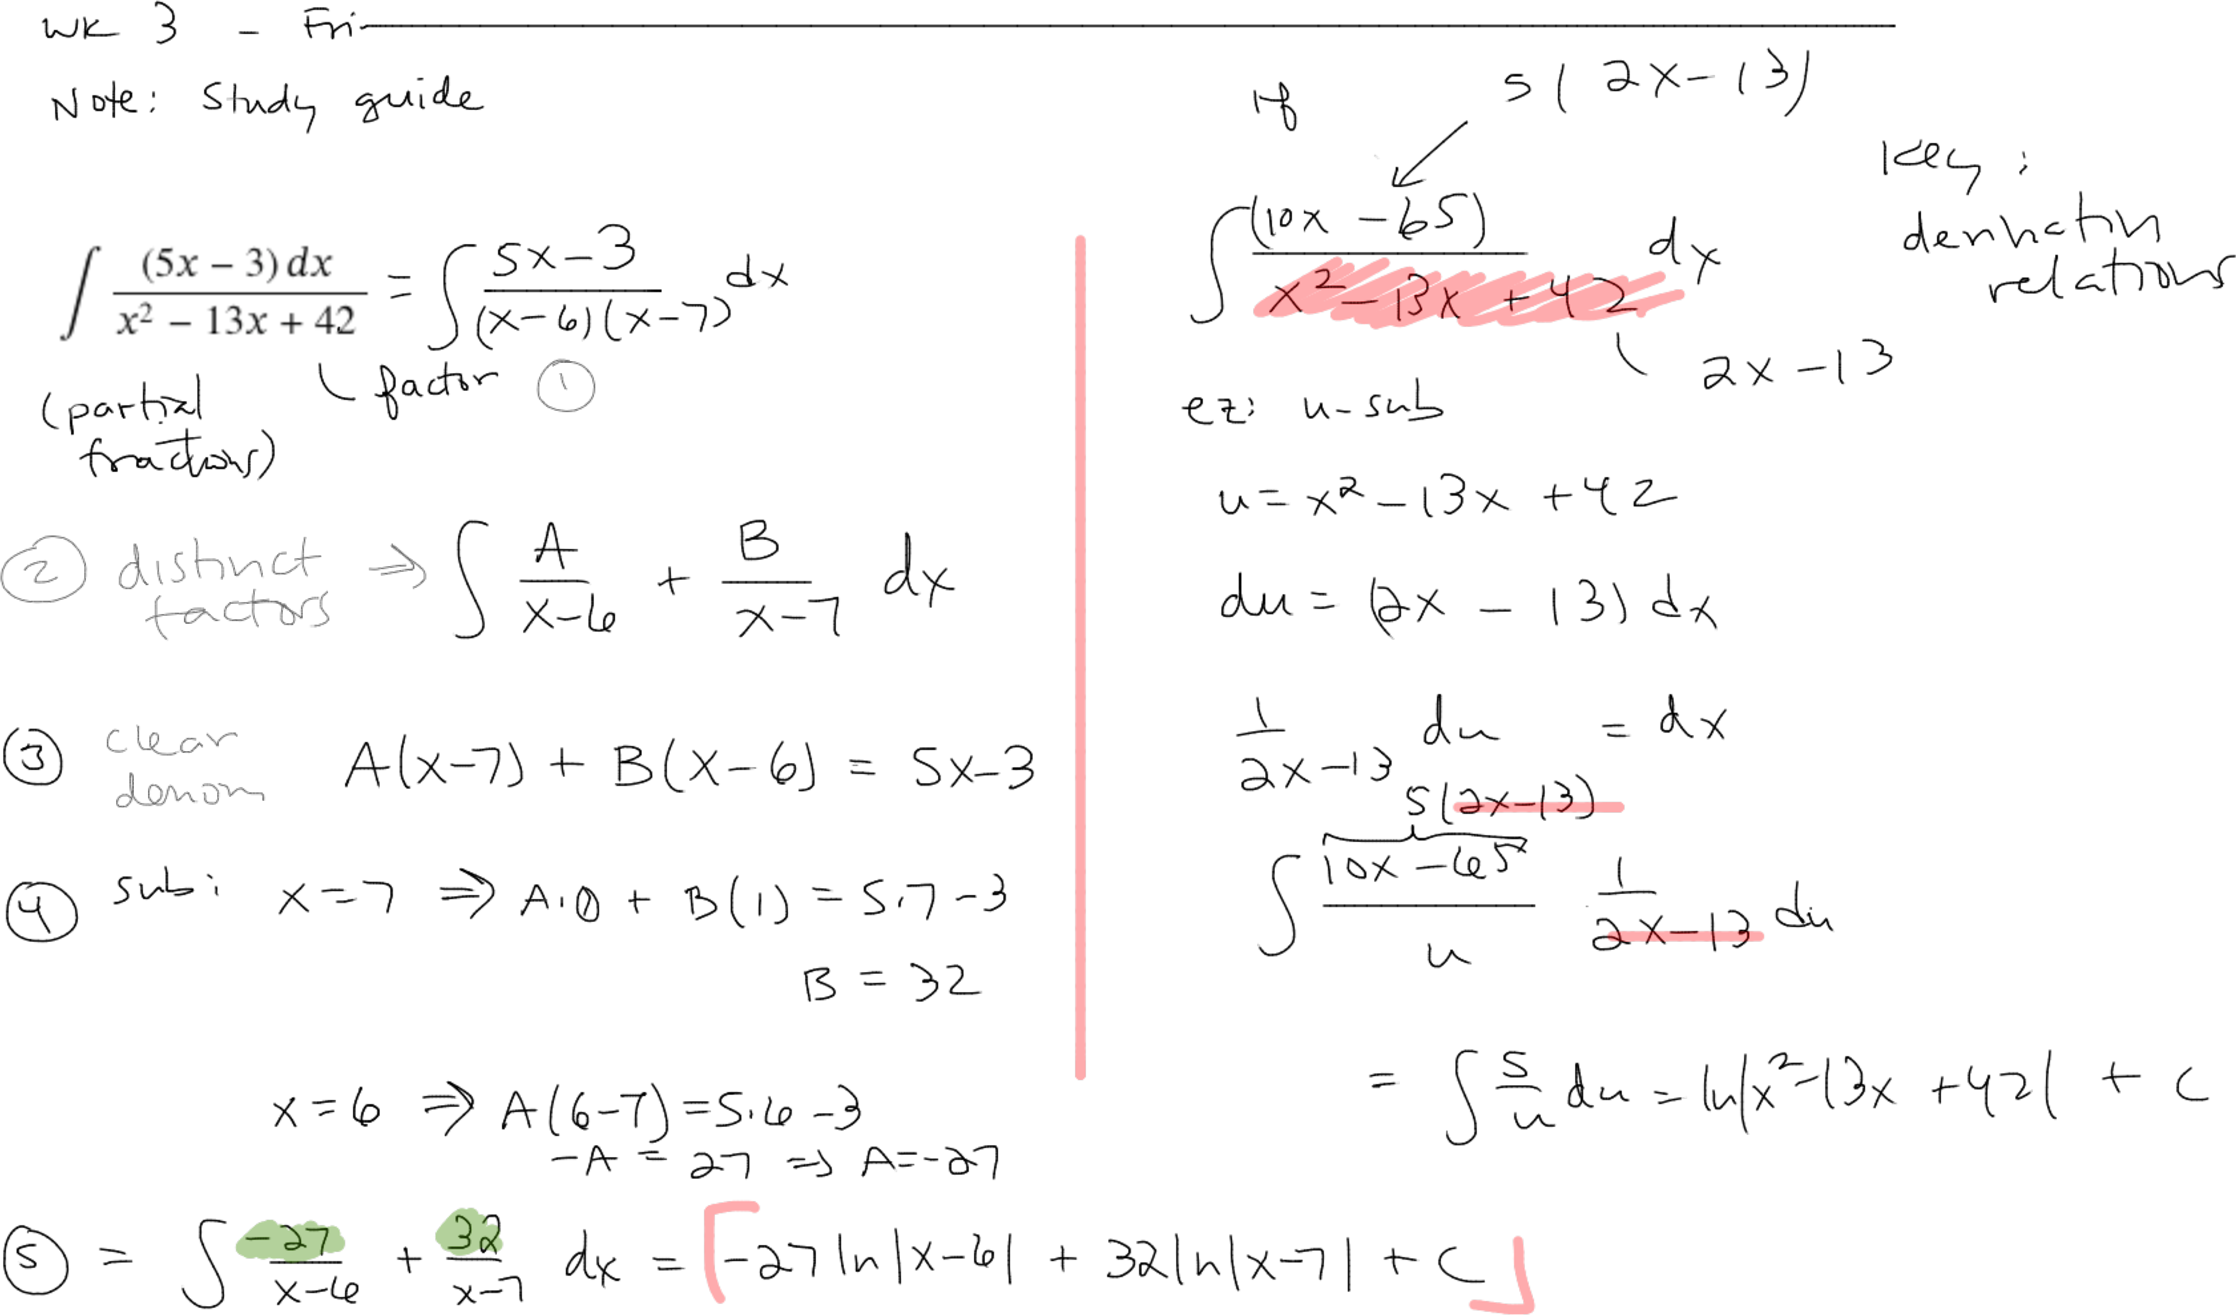 WK 3 - Fri
Note: Study guide
∫ (5x − 3) dx / x² − 13x + 42 = ∫ 5x−3 / (x−6)(x−7) dx
(partial fractions)
factor ①
② distinct factors ⇒ ∫ A/x−6 + B/x−7 dx
③ clear denom A(x−7) + B(x−6) = 5x−3
④ sub: x=7 ⇒ A·0 + B(1) = 5·7−3
B = 32
x=6 ⇒ A(6−7)=5·6−3
−A = 27 ⇒ A=−27
⑤ = ∫ −27/x−6 + 32/x−7 dx = −27 ln|x−6| + 32 ln|x−7| + C
If
5(2x−13)
∫ (10x −65) / x²−13x+42 dx
2x−13
Key:
relations
ez: u-sub
u = x²−13x +42
du = (2x − 13) dx
1/2x−13 du = dx
5(2x−13)
∫ 10x−65 / u 1/2x−13 du
= ∫ 5/u du = ln|x²−13x +42| + C